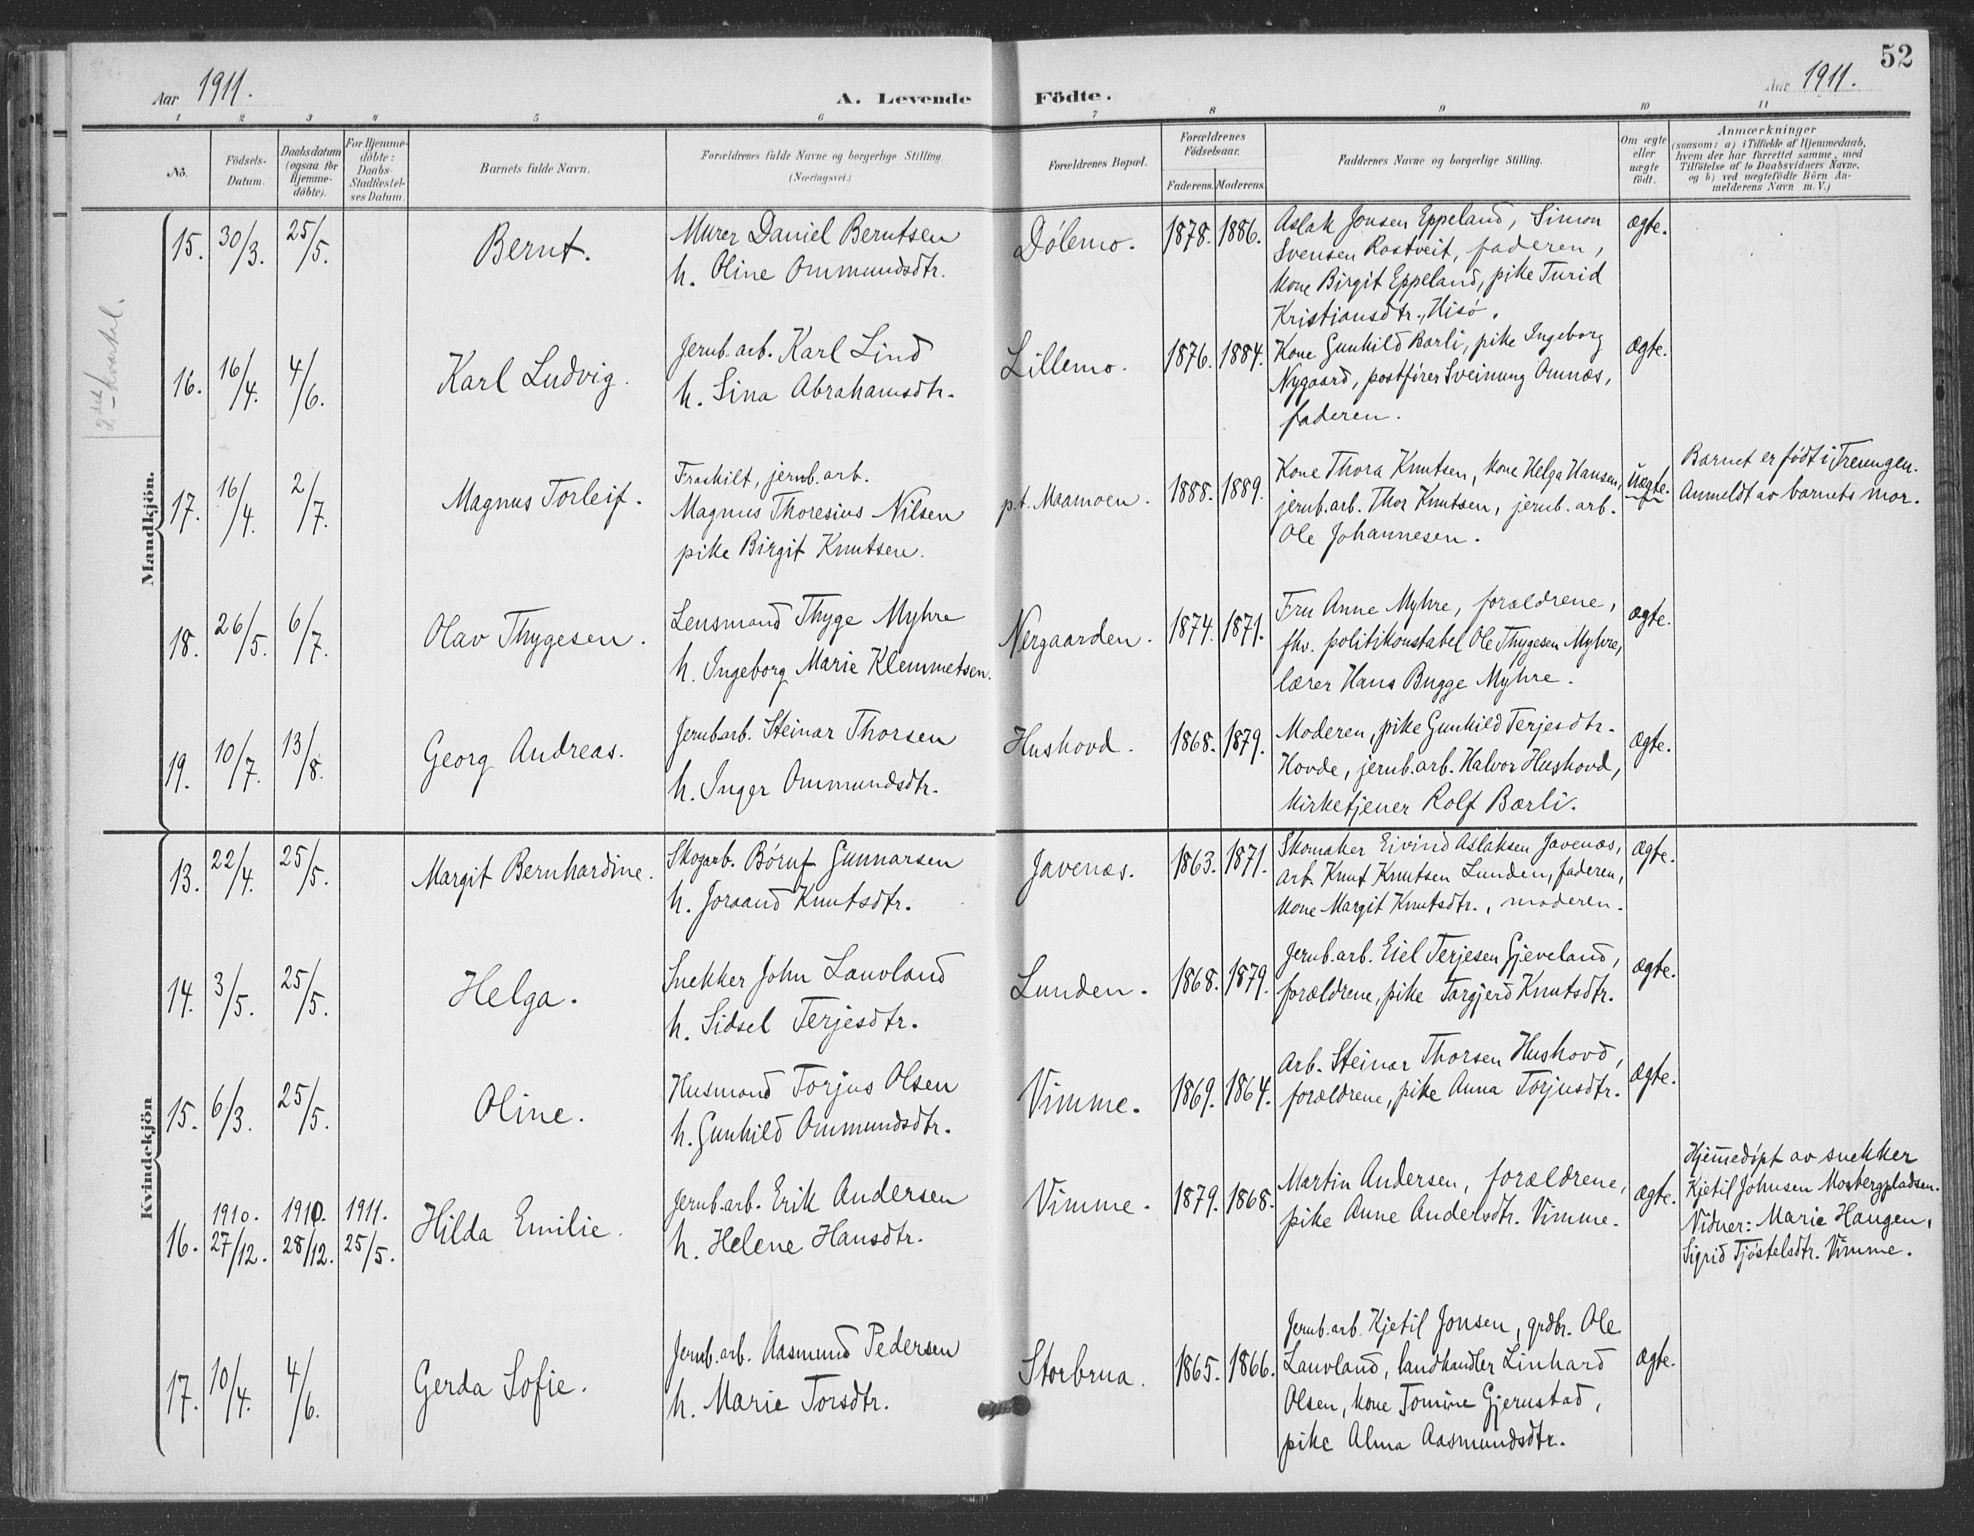 52
Aar 1911.
A. Levende Födte.
Aar 1911.
1 2 3 4 5 6 7 8 9 10 11
No.
Födsels-Datum.
Daabsdatum (ogsaa for Hjemme-döbte).
For Hjemme-döbte: Daabs-Stadfæstel-ses Datum.
Barnets fulde Navn.
Forældrenes fulde Navne og borgerlige Stilling.
(Næringsvei.)
Forældrenes Bopæl.
Forældrenes Födselsaar.
Faderens. Moderens.
Faddernes Navne og borgerlige Stilling.
Om ægte eller uægte födt.
Anmærkninger
(saasom: a) i Tilfælde af Hjemmedaab,
hvem der har forrettet samme, med
Tilföielse af to Daabsvidners Navne,
og b) ved uægtefödte Börn An-
melderens Navn m. V.)
2det kvartal.
Mandkjön.
15. 30/3. 25/5. Bernt. Murer Daniel Berntsen
h. Oline Ommundsdtr. Dølemo. 1878. 1886. Aslak Jonsen Eppeland, Simon
Svensen Rostveit, faderen,
kone Birgit Eppeland, pike Turid
Kristiansdtr., Hisø. ægte.
16. 16/4. 4/6. Karl Ludvig. Jernb.arb. Karl Lind
h. Sina Abrahamsdtr. Lillemo. 1876. 1884. Kone Gunhild Bærli, pike Ingeborg
Nygaard, postfører Sveinung Omnæs,
faderen. ægte.
17. 16/4. 2/7. Magnus Torleif. Fraskilt, jernb.arb.
Magnus Thoresius Nilsen
pike Birgit Knutsen. p.t. Maamoen. 1888. 1889. Kone Thora Knutsen, kone Helga Hansen,
jernb.arb. Thor Knutsen, jernb. arb.
Ole Johannesen. Uægte. Barnet er født i Treungen.
Anmeldt av barnets mor.
18. 26/5. 6/7. Olav Thygesen. Lensmand Thyge Myhre
h. Ingeborg Marie Klemmetsen. Nergaarden. 1874. 1871. Fru Anne Myhre, forældrene,
fhv. politikonstabel Ole Thygesen Myhre,
lærer Hans Bugge Myhre. ægte.
19. 10/7. 13/8. Georg Andreas. Jernb.arb. Steinar Thorsen
h. Inger Ommundsdtr. Hushovd. 1868. 1879. Moderen, pike Gunhild Terjesdtr.
Hovde, jernb.arb. Halvor Hushovd,
kirketjener Rolf Bærli. ægte.
Kvindekjön
13. 22/4. 25/5. Margit Bernhardine. Skogarb. Børuf Gunnarsen
h. Joraand Knutsdtr. Javenæs. 1863. 1871. Skomaker Eivind Aslaksen Javenæs,
arb. Knut Knutsen Lunden, faderen,
kone Margit Knutsdtr., moderen. ægte.
14. 3/5. 25/5. Helga. Snekker John Lauvland
h. Sidsel Terjesdtr. Lunden. 1868. 1879. Jernb.arb. Eiel Terjesen Gjeveland,
forældrene, pike Targjerd Knutsdtr. ægte.
15. 6/3. 25/5. Oline. Husmand Torjus Olsen
h. Gunhild Ommundsdtr. Vimme. 1869. 1864. Arb. Steinar Thorsen Hushovd,
forældrene, pike Anna Torjusdtr. ægte.
16. 1910. 27/12. 1910. 28/12. 1911. 25/5. Hilda Emilie. Jernb.arb. Erik Andersen
h. Helene Hansdtr. Vimme. 1879. 1868. Martin Andersen, forældrene,
pike Anne Andersdtr. Vimme. ægte. Hjemmedøpt av snekker
Kjetil Johnsen Mosbergpladsen.
Vidner: Marie Haugen,
Sigrid Tjøstelsdtr. Vimme.
17. 10/4. 4/6. Gerda Sofie. Jernb.arb. Aasmund Pedersen
h. Marie Torsdtr. Storbrua. 1865. 1866. Jernb.arb. Kjetil Jonsen, grdbr. Ole
Lauvland, landhandler Linhard
Olsen, kone Tomine Gjernstad,
pike Alma Aasmundsdtr. ægte.